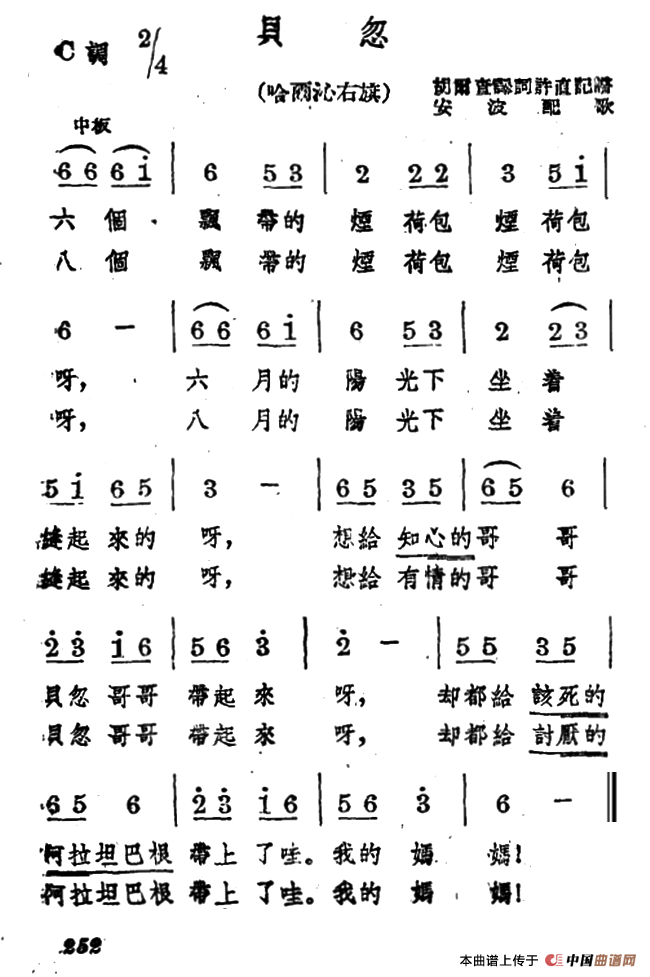 貝忽
C調 2/4
(哈爾沁右旗)
胡爾査譯詞許直記譜
安波配歌
中板
6 6 6 i | 6 5 3 | 2 2 2 | 3 5 i |
六個 飄帶的 煙荷包 煙荷包
八個 飄帶的 煙荷包 煙荷包
6 — | 6 6 6 i | 6 5 3 | 2 2 3 |
呀, 六月的 陽光下 坐着
呀, 八月的 陽光下 坐着
5 i 6 5 | 3 — | 6 5 3 5 | 6 5 6 |
縫起來的 呀, 想給知心的哥哥
縫起來的 呀, 想給有情的哥哥
2 3 i 6 | 5 6 3 | 2 — | 5 5 3 5 |
貝忽哥哥 帶起來 呀, 却都給該死的
貝忽哥哥 帶起來 呀, 却都給討厭的
6 5 6 | 2 3 i 6 | 5 6 3 | 6 — ‖
阿拉坦巴根 帶上了哇。我的媽媽!
阿拉坦巴根 帶上了哇。我的媽媽!
252
本曲谱上传于 中国曲谱网